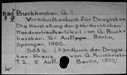 Buchheister, G. A.
Vorschriftenbuch für Drogisten.
Die Herstellung der gebräuchlichen
Handverkaufsartikel von G. Buch-
heister. 5. Aufl. Berlin,
Springer, 1905.
(Handbuch der Drogisten-
Praxis von G. Buchheister.
T. 2, 5 Aufl. Berlin, 1905)